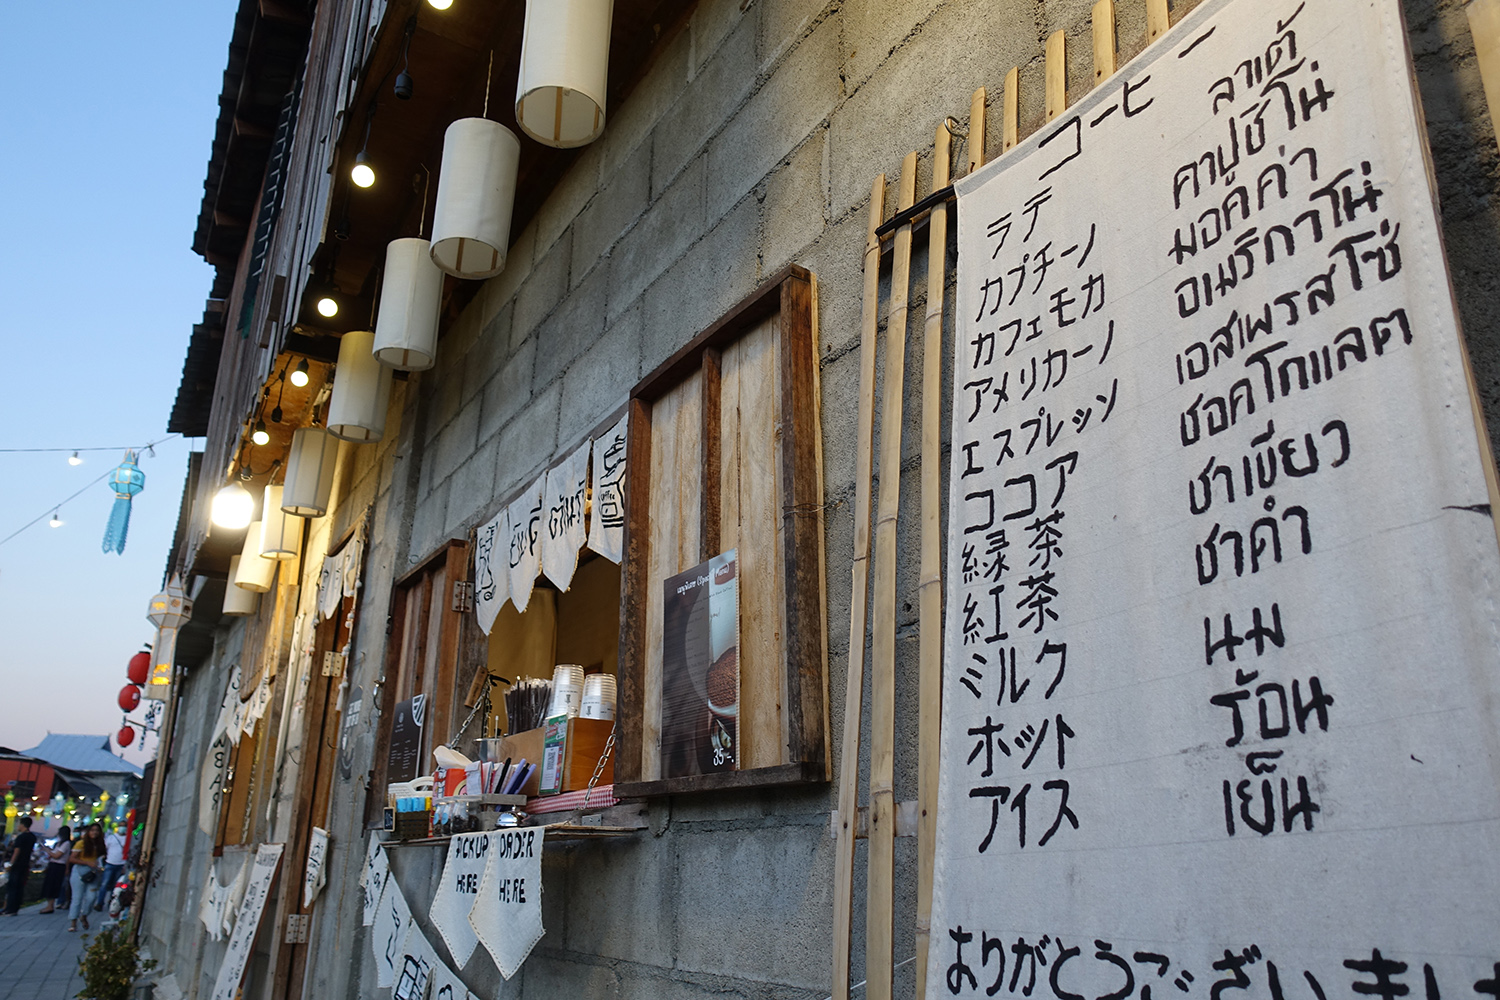 コーヒー
ラテ ลาเต้
カプチーノ คาปูชิโน่
カフェモカ มอคค่า
アメリカーノ อเมริกาโน่
エスプレッソ เอสเพรสโซ่
ココア ชอคโกแลต
緑茶 ชาเขียว
紅茶 ชาดำ
ミルク นม
ホット ร้อน
アイス เย็น
ありがとうございました
PICKUP HERE
ORDER HERE
Coffee
เมนูพิเศษ (Special Menu)
35.-
BAR